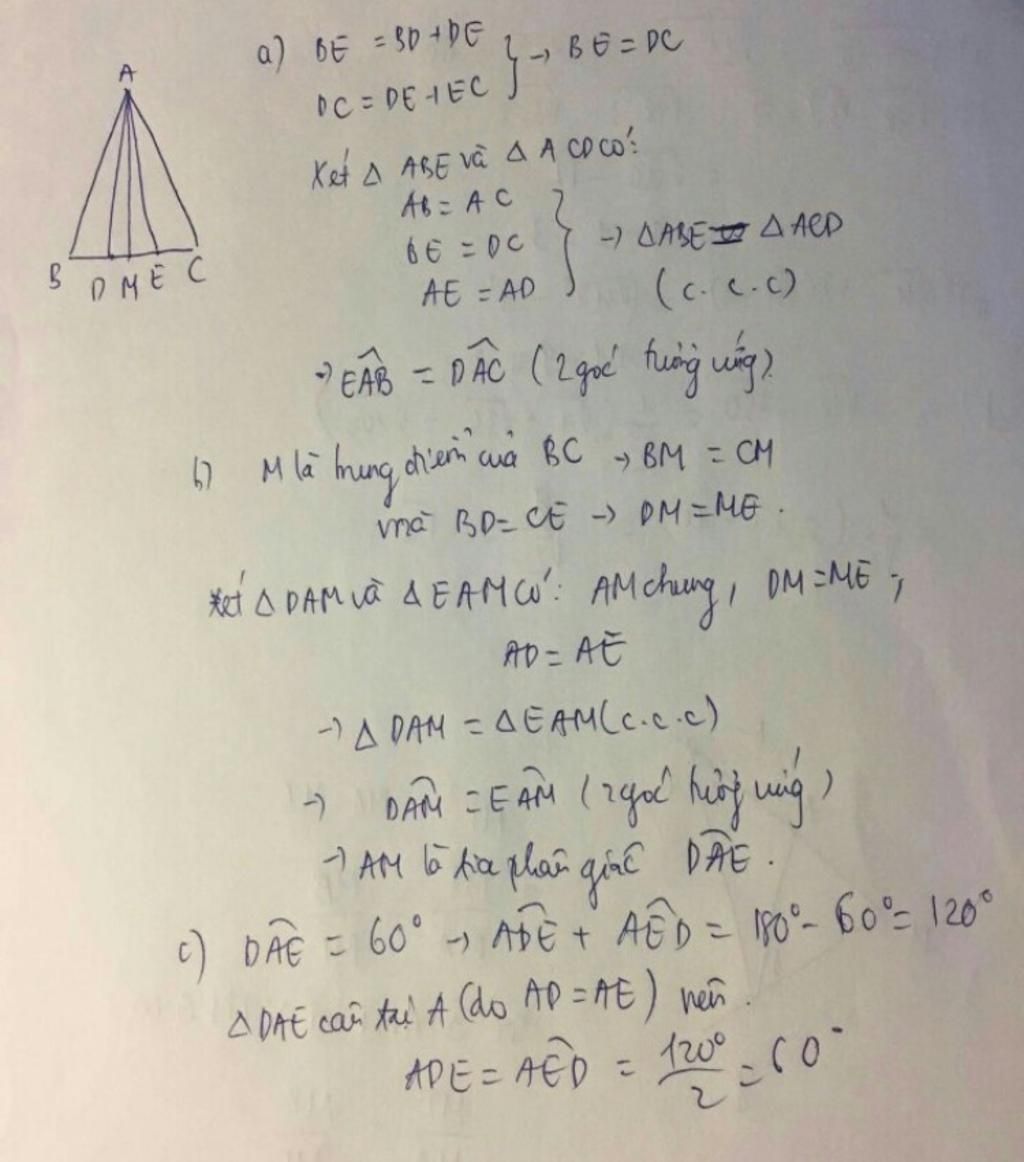 A
B D M E C
a) BE = BD + DE
DC = DE + EC } → BE = DC
Xét Δ ABE và Δ ACD có:
AB = AC
BE = DC
AE = AD } → ΔABE = ΔACD
(c.c.c)
→ EAB̂ = DAĈ (2 góc tương ứng)
b) M là trung điểm của BC → BM = CM
mà BD = CE → DM = ME.
Xét Δ DAM và Δ EAM có: AM chung, DM = ME;
AD = AE
→ Δ DAM = Δ EAM (c.c.c)
→ DAM̂ = EAM̂ (2 góc tương ứng)
→ AM là tia phân giác DAÊ.
c) DAÊ = 60° → ADÊ + AED̂ = 180° - 60° = 120°
Δ DAE cân tại A (do AD = AE) nên.
ADE = AED̂ = 120°/2 = 60°